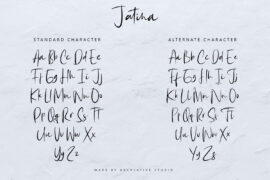 Jatina
STANDARD CHARACTER
Aa Bb Cc Dd Ee
Ff Gg Hh Ii Jj
Kk Ll Mm Nn Oo
Pp Qq Rr Ss Tt
Uu Vv Ww Xx
Yy Zz
ALTERNATE CHARACTER
Aa Bb Cc Dd Ee
Ff Gg Hh Ii Jj
Kk Ll Mm Nn Oo
Pp Qq Rr Ss Tt
Uu Vv Ww Xx
Yy Zz